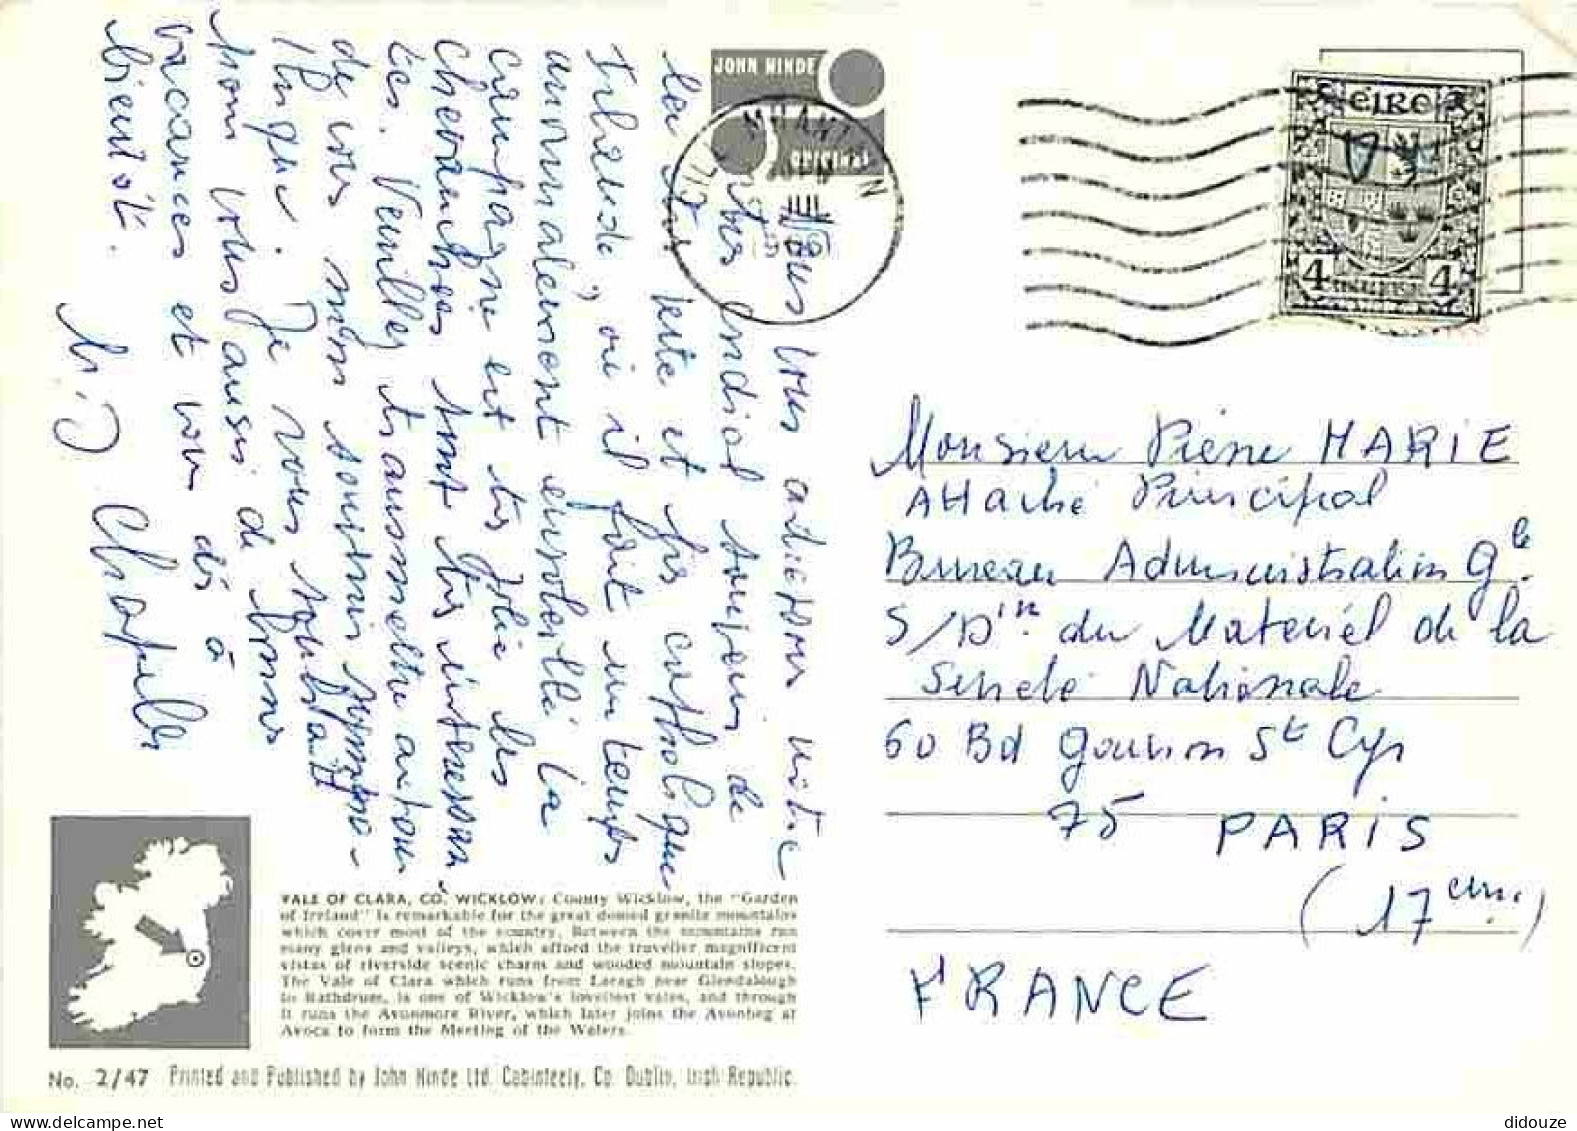 JOHN HINDE
ORIGINAL
EIRE
4 4
Nous vous adressons notre
très cordial souvenir de
la verte et très catholique
Irlande, où il fait un temps
anormalement ensoleillé. La
campagne est très jolie les
tes. Veuillez transmettre autour
de vous mon souvenir sympa-
thique. Je vous souhait
nom vous aussi de bonnes
vacances et vous dis à
bientôt.
Monsieur Pierre MARIE
Attaché Principal
Bureau Administration Gle
S/Don du Matériel de la
Sureté Nationale
60 Bd Gouvion St Cyr
75 PARIS
(17em.)
FRANCE
VALE OF CLARA, CO. WICKLOW: County Wicklow, the "Garden
of Ireland" is remarkable for the great domed granite mountains
which cover most of the country. Between the mountains run
many glens and valleys, which afford the traveller magnificent
vistas of riverside scenic charm and wooded mountain slopes.
The Vale of Clara which runs from Laragh near Glendalough
to Rathdrum, is one of Wicklow's loveliest vales, and through
it runs the Avonmore River, which later joins the Avonbeg at
Avoca to form the Meeting of the Waters.
No. 2/47 Printed and Published by John Hinde Ltd. Cabinteely, Co. Dublin, Irish Republic.
didouze